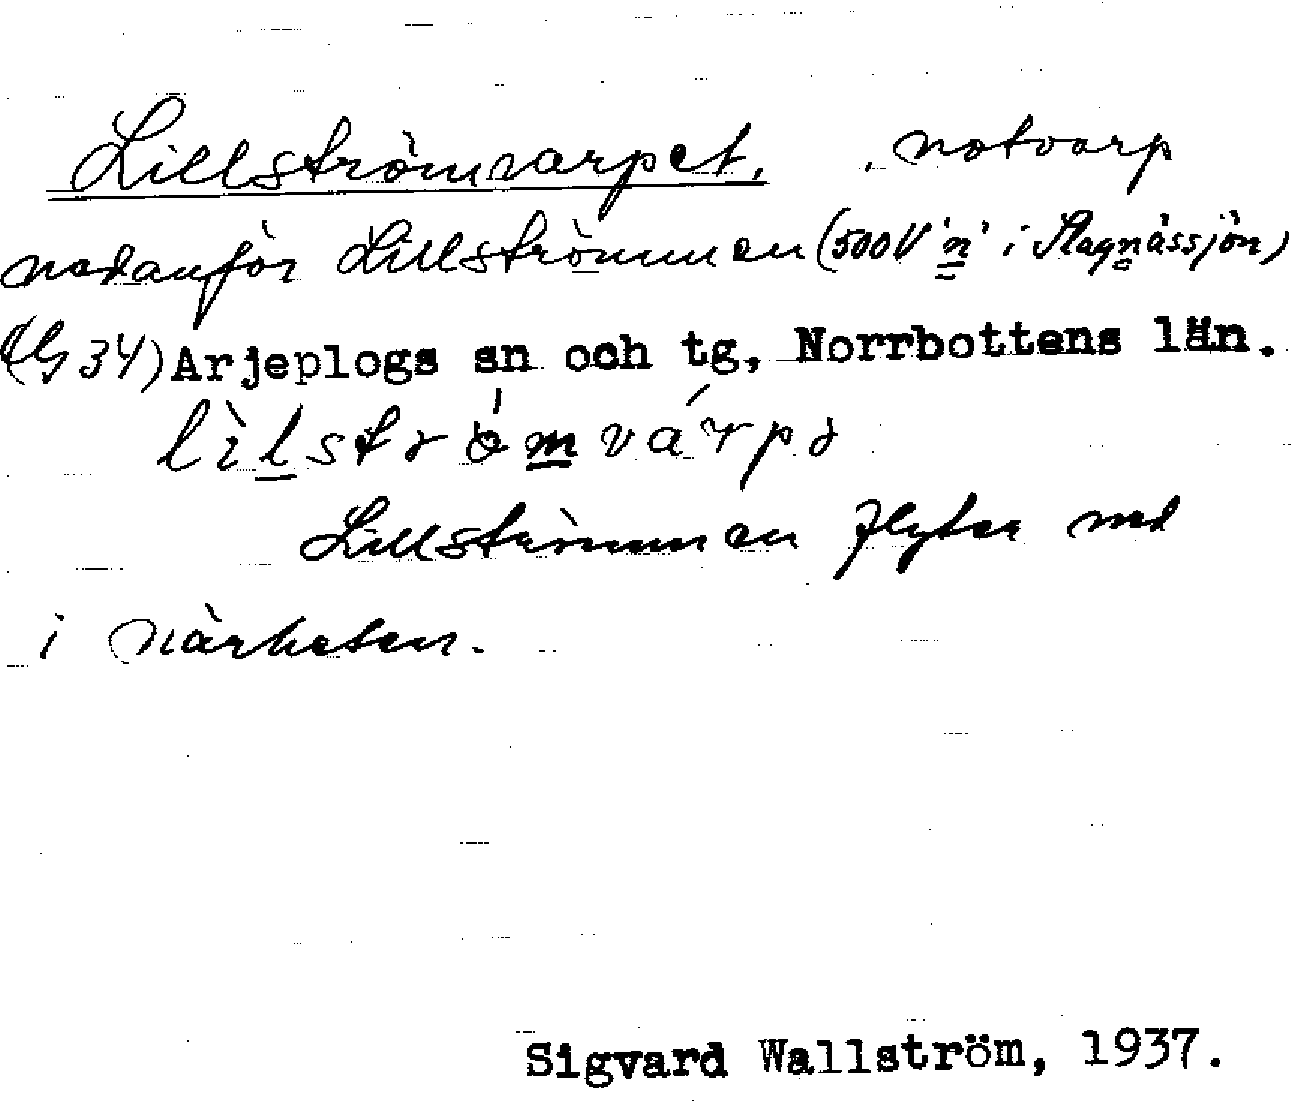 Lillströmvarpet. , notvarp
nedanför Lillströmmen (500 V 'n' i Stagnässjön)
34) Arjeplogs sn och tg, Norrbottens län.
lìlströ́mvárpə
Lillströmmen flyter ned
i närheten.
Sigvard Wallström, 1937.